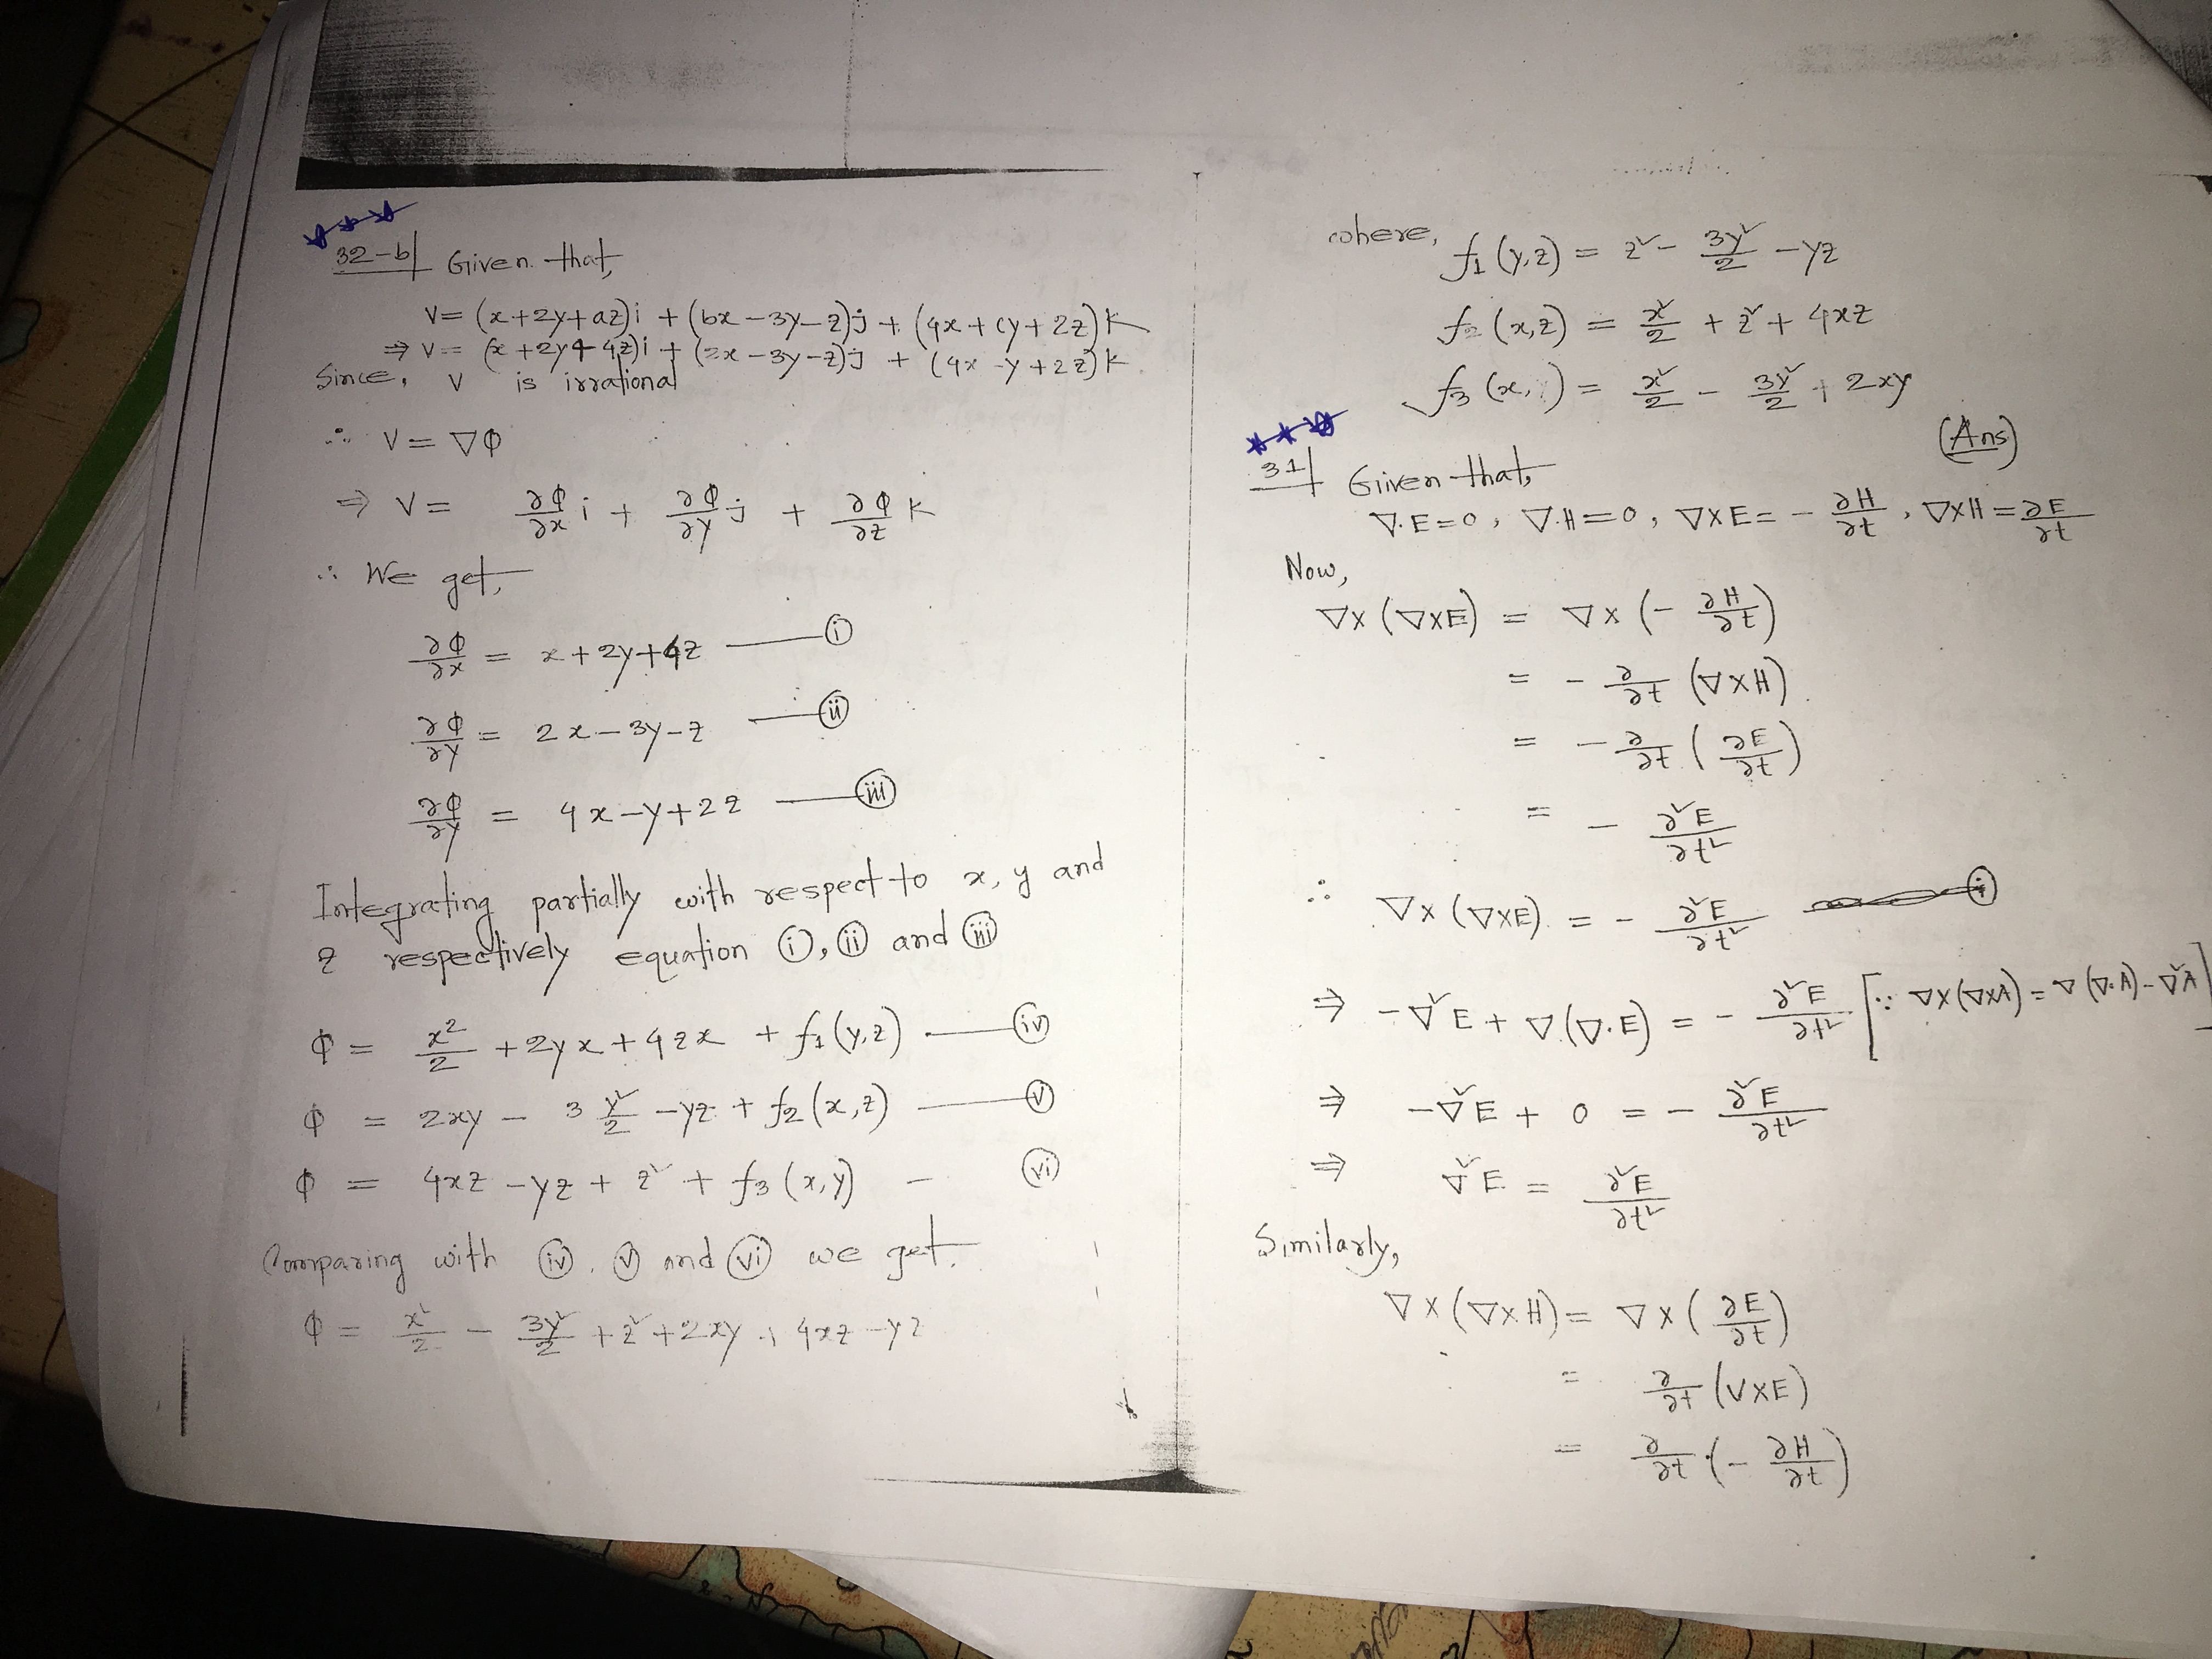 32-b| Given that,
V = (x+2y+az)i + (bx-3y-z)j + (4x+cy+2z)k
⇒ V = (x+2y+4z)i + (2x-3y-z)j + (4x-y+2z)k
Since, V is irrational
∴ V = ∇Φ
⇒ V = ∂Φ/∂x i + ∂Φ/∂y j + ∂Φ/∂z k
∴ We get,
∂Φ/∂x = x+2y+4z —— (i)
∂Φ/∂y = 2x-3y-z —— (ii)
∂Φ/∂y = 4x-y+2z —— (iii)
Integrating partially with respect to x, y and
z respectively equation (i), (ii) and (iii)
Φ = x²/2 + 2yx + 4zx + f₁(y,z) —— (iv)
Φ = 2xy - 3 y²/2 - yz + f₂(x,z) —— (v)
Φ = 4xz - yz + z² + f₃(x,y) — (vi)
Comparing with (iv), (v) and (vi) we get.
Φ = x²/2 - 3y²/2 + z² + 2xy + 4xz - yz
where,
f₁(y,z) = z² - 3y²/2 - yz
f₂(x,z) = x²/2 + z² + 4xz
f₃(x, ) = x²/2 - 3y²/2 + 2xy
(Ans)
31| Given that,
∇·E=0, ∇·H=0, ∇×E = -∂H/∂t, ∇×H = ∂E/∂t
Now,
∇×(∇×E) = ∇×(-∂H/∂t)
= -∂/∂t (∇×H)
= -∂/∂t (∂E/∂t)
= -∂²E/∂t²
∴ ∇×(∇×E) = -∂²E/∂t² —— (i)
⇒ -∇²E + ∇(∇·E) = -∂²E/∂t² [∵ ∇×(∇×A) = ∇(∇·A) - ∇²A]
⇒ -∇²E + 0 = -∂²E/∂t²
⇒ ∇²E = ∂²E/∂t²
Similarly,
∇×(∇×H) = ∇×(∂E/∂t)
= ∂/∂t (∇×E)
= ∂/∂t (-∂H/∂t)